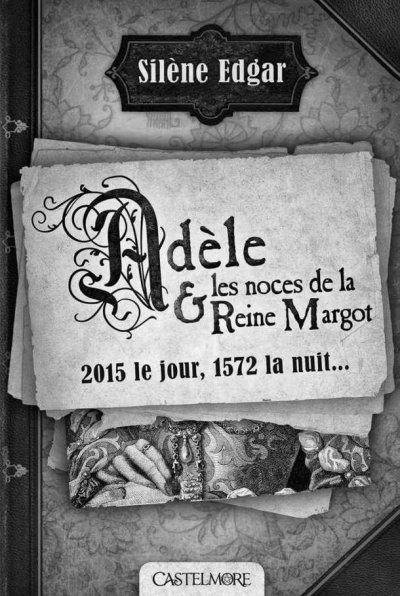 Silène Edgar
Adèle
& les noces de la
Reine Margot
2015 le jour, 1572 la nuit...
CASTELMORE